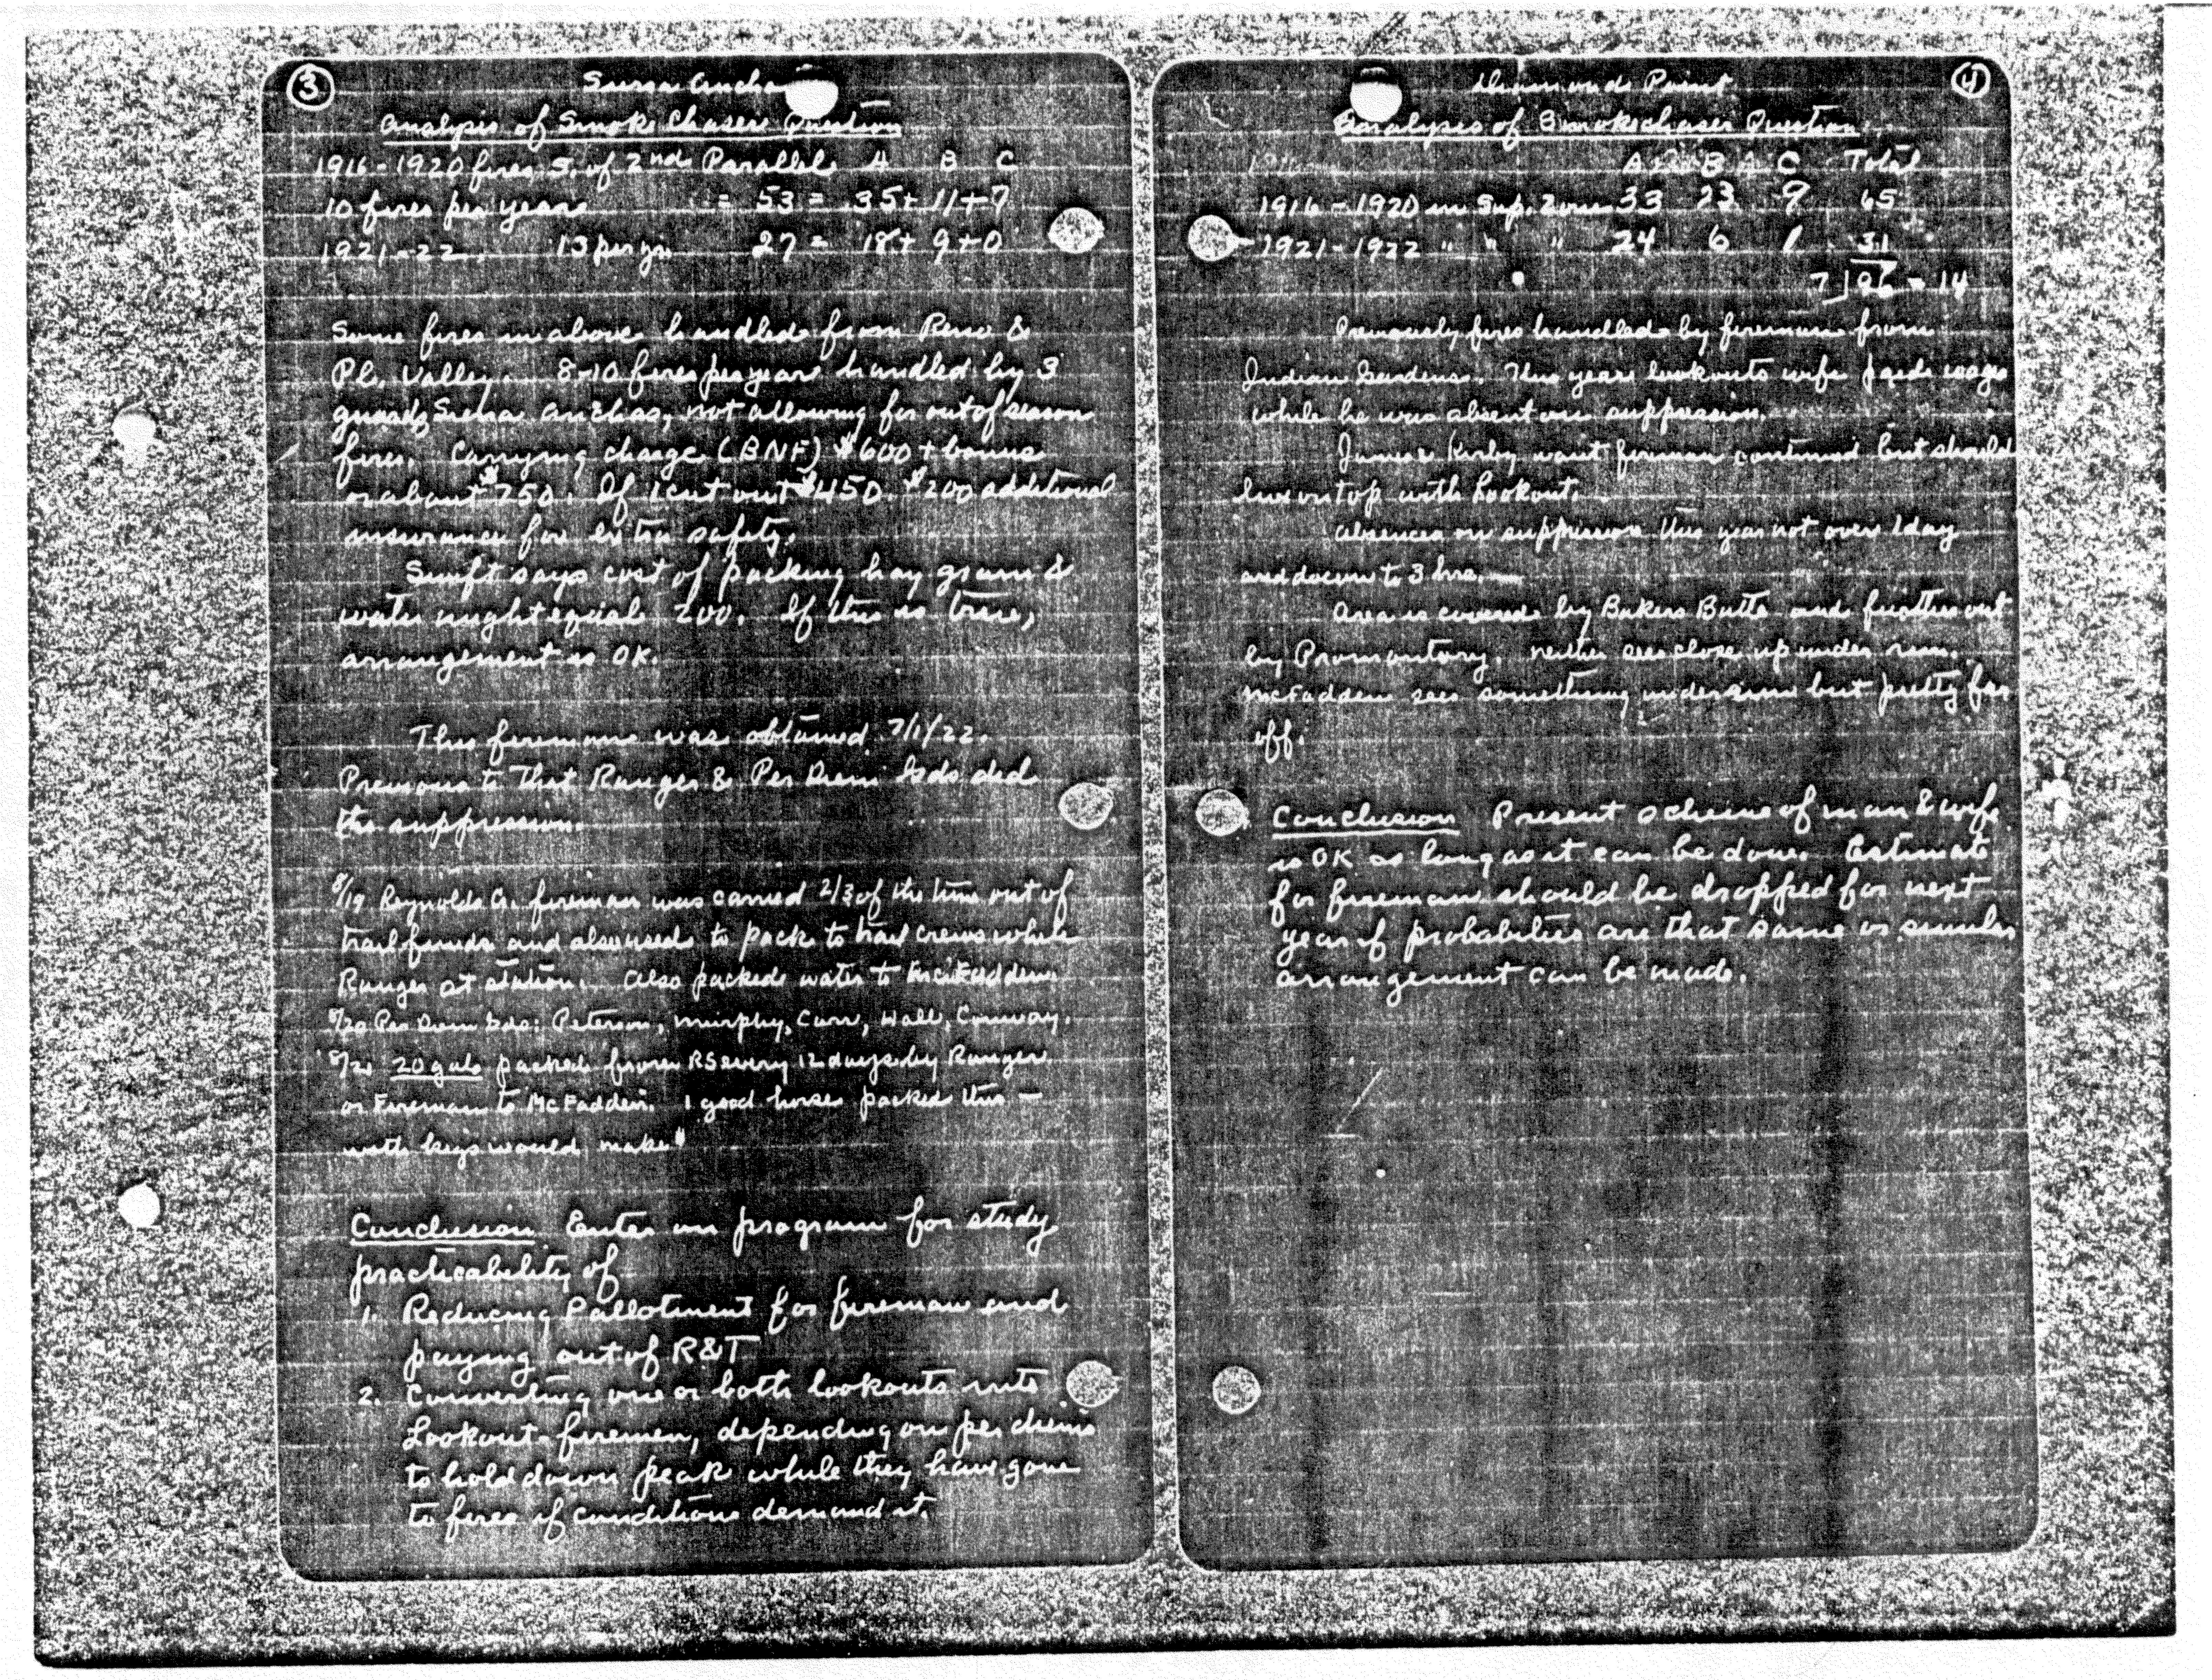 3
Sierra Ancha
Analysis of Smoke Chaser Question
1916-1920 fires S. of 2nd Parallel A B C
10 fires per year = 53 = 35 + 11 + 7
1921-22. 13 per yr. 27 = 18 + 9 + 0
Some fires in above handled from Reno &
Pl. Valley. 8-10 fires per year handled by 3
guards Sierra Anchas, not allowing for out of season
fires. Carrying charge (BNF) $600 + bonus
or about $750. If 1 cut out $450. $200 additional
insurance for extra safety.
Swift says cost of packing hay grain &
water might equal 200. If this is true,
arrangement is OK.
This fireman was obtained 7/1/22.
Previous to that Ranger & Per Diem Gds did
the suppression.
8/19 Reynolds Cr. fireman was carried 2/3 of the time out of
trail funds and also used to pack to trail crews while
Ranger at station. Also packed water to McFadden.
8/20 Per Diem Gds: Peterson, Murphy, Carr, Wall, Conway.
8/21 20 gals packed from RS every 12 days by Ranger
or Fireman to McFadden. 1 good horse packed this —
with kegs would make
Conclusion Enter on program for study
practicability of
1. Reducing P allotment for fireman and
paying out of R&T
2. Converting one or both lookouts into
Lookout-firemen, depending on per diems
to hold down peak while they have gone
to fires if conditions demand it.
4
Diamond Point
Analysis of Smokechaser Question
A B C Total
1916-1920 in Sup. Zone 33 23 9 65
1921-1922 " " " 24 6 1 31
7 | 96 = 14
Previously fires handled by fireman from
Indian Gardens. This year lookouts wife paid wages
while he was absent on suppression.
James Kirby want fireman continued but should
live on top with Lookout.
Absences on suppression this year not over 1 day
and down to 3 hrs. —
Area is covered by Bakers Butte and further out
by Promontory. Neither sees close up under rim.
McFadden sees something under rim but pretty far
off.
Conclusion Present scheme of man & wife
is OK as long as it can be done. Estimate
for fireman should be dropped for next
year if probabilities are that same or similar
arrangement can be made.